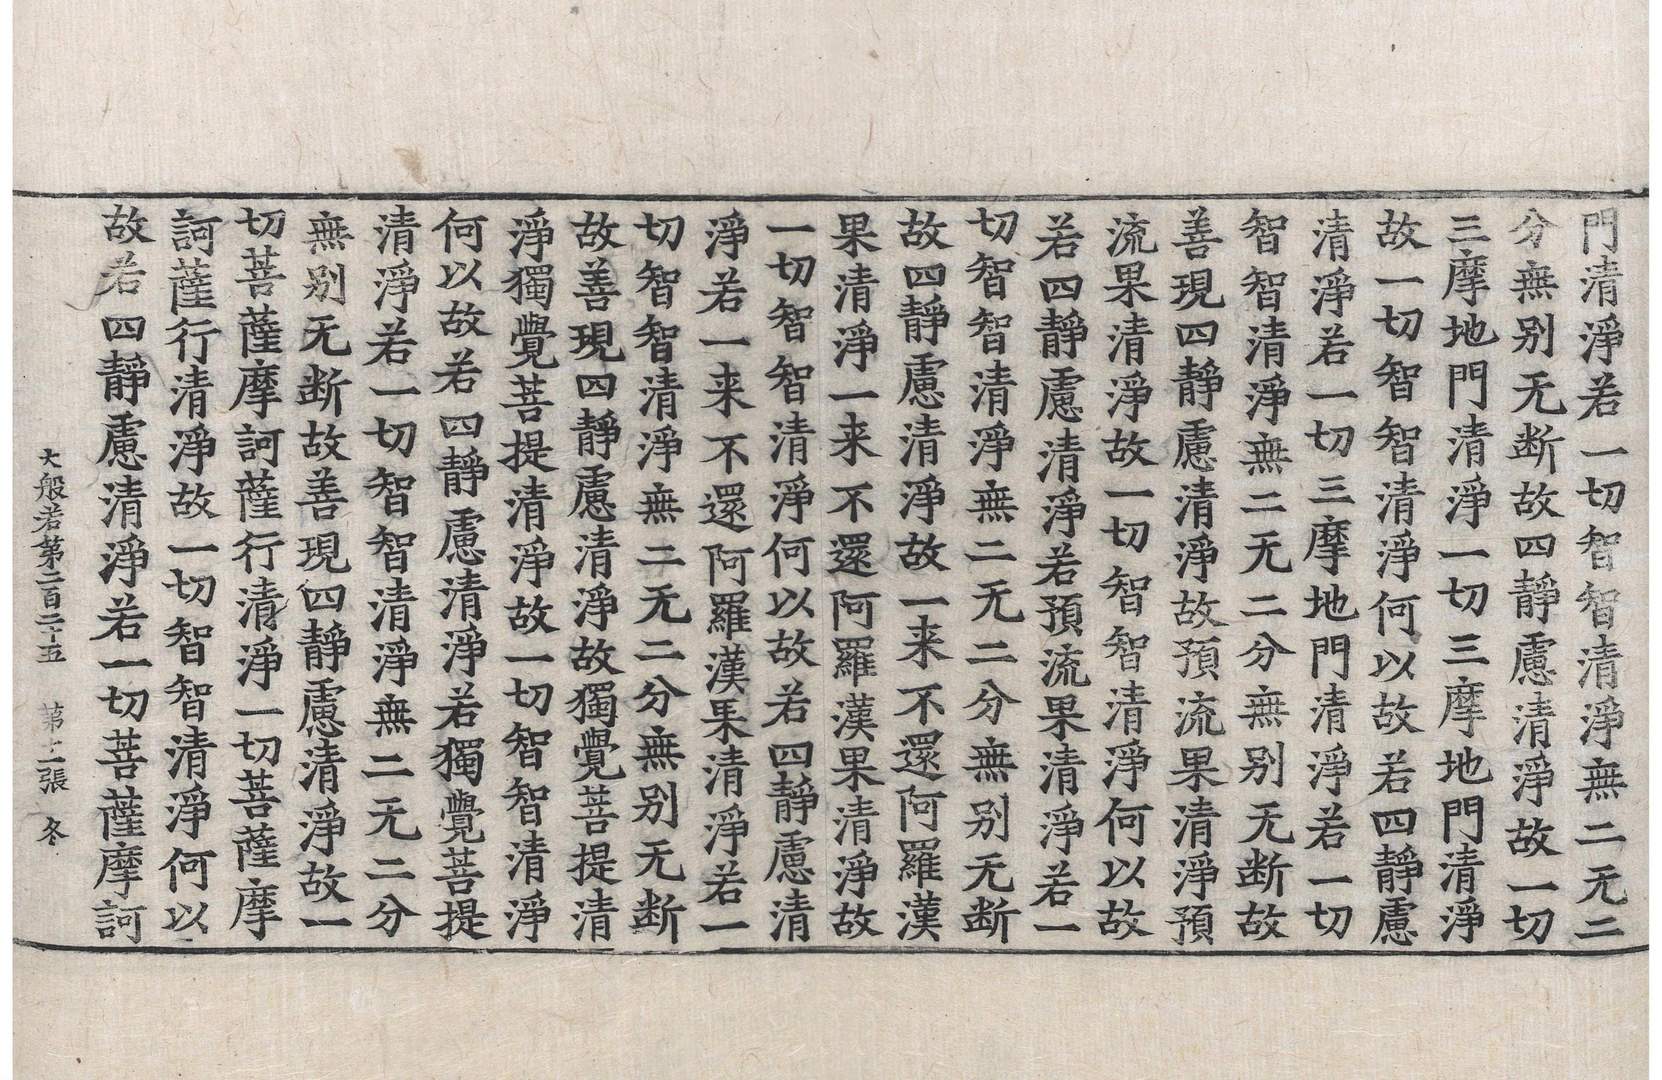 門清淨若一切智智清淨無二无二
分無别无断故四靜慮清淨故一切
三摩地門清淨一切三摩地門清淨
故一切智智清淨何以故若四靜慮
清淨若一切三摩地門清淨若一切
智智清淨無二无二分無别无断故
善現四靜慮清淨故預流果清淨預
流果清淨故一切智智清淨何以故
若四靜慮清淨若預流果清淨若一
切智智清淨無二无二分無别无断
故四靜慮清淨故一来不還阿羅漢
果清淨一来不還阿羅漢果清淨故
一切智智清淨何以故若四靜慮清
淨若一来不還阿羅漢果清淨若一
切智智清淨無二无二分無别无断
故善現四靜慮清淨故獨覺菩提清
淨獨覺菩提清淨故一切智智清淨
何以故若四靜慮清淨若獨覺菩提
清淨若一切智智清淨無二无二分
無别无断故善現四靜慮清淨故一
切菩薩摩訶薩行清淨一切菩薩摩
訶薩行清淨故一切智智清淨何以
故若四靜慮清淨若一切菩薩摩訶
大般若第二百二十五 第十一張 冬